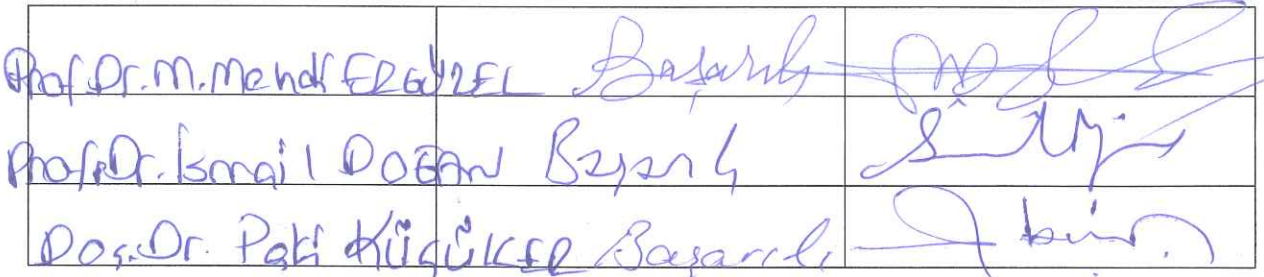 Prof.Dr.M.Mehdi ERGÜZEL Başarılı
Prof.Dr.İsmail DOĞAN Başarılı
Doç.Dr. Paki KÜÇÜKER Başarılı